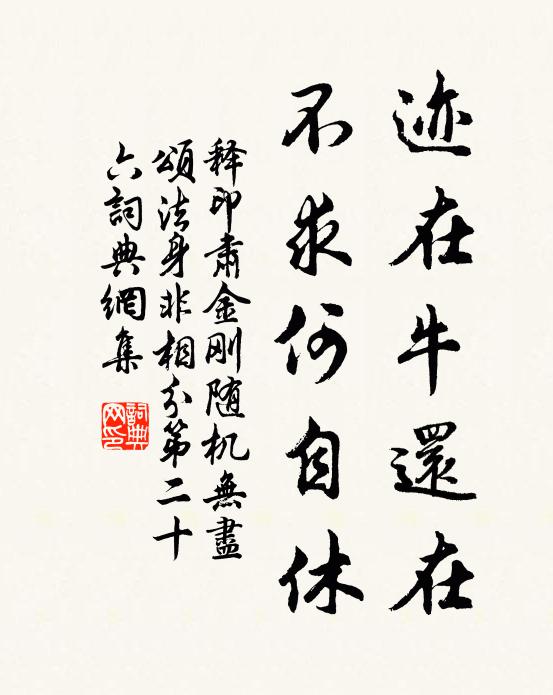 迹在牛還在
不求何自休
释印肃金刚随机無盡
頌法身非相分第二十
六詞典網集
詞典
网印